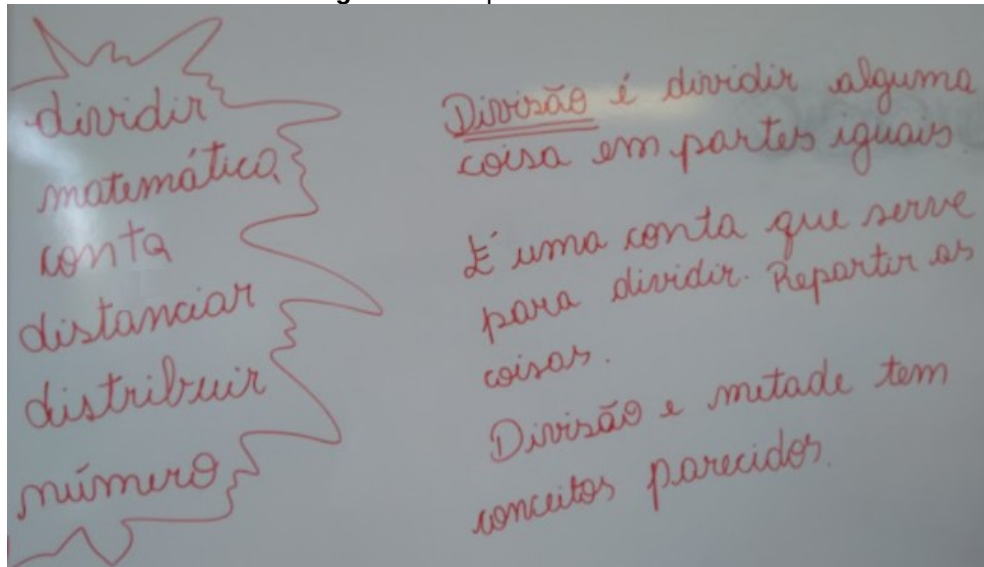 dividir
matemática
conta
distanciar
distribuir
número
Divisão é dividir alguma
coisa em partes iguais.
É uma conta que serve
para dividir. Repartir as
coisas.
Divisão e metade tem
conceitos parecidos.